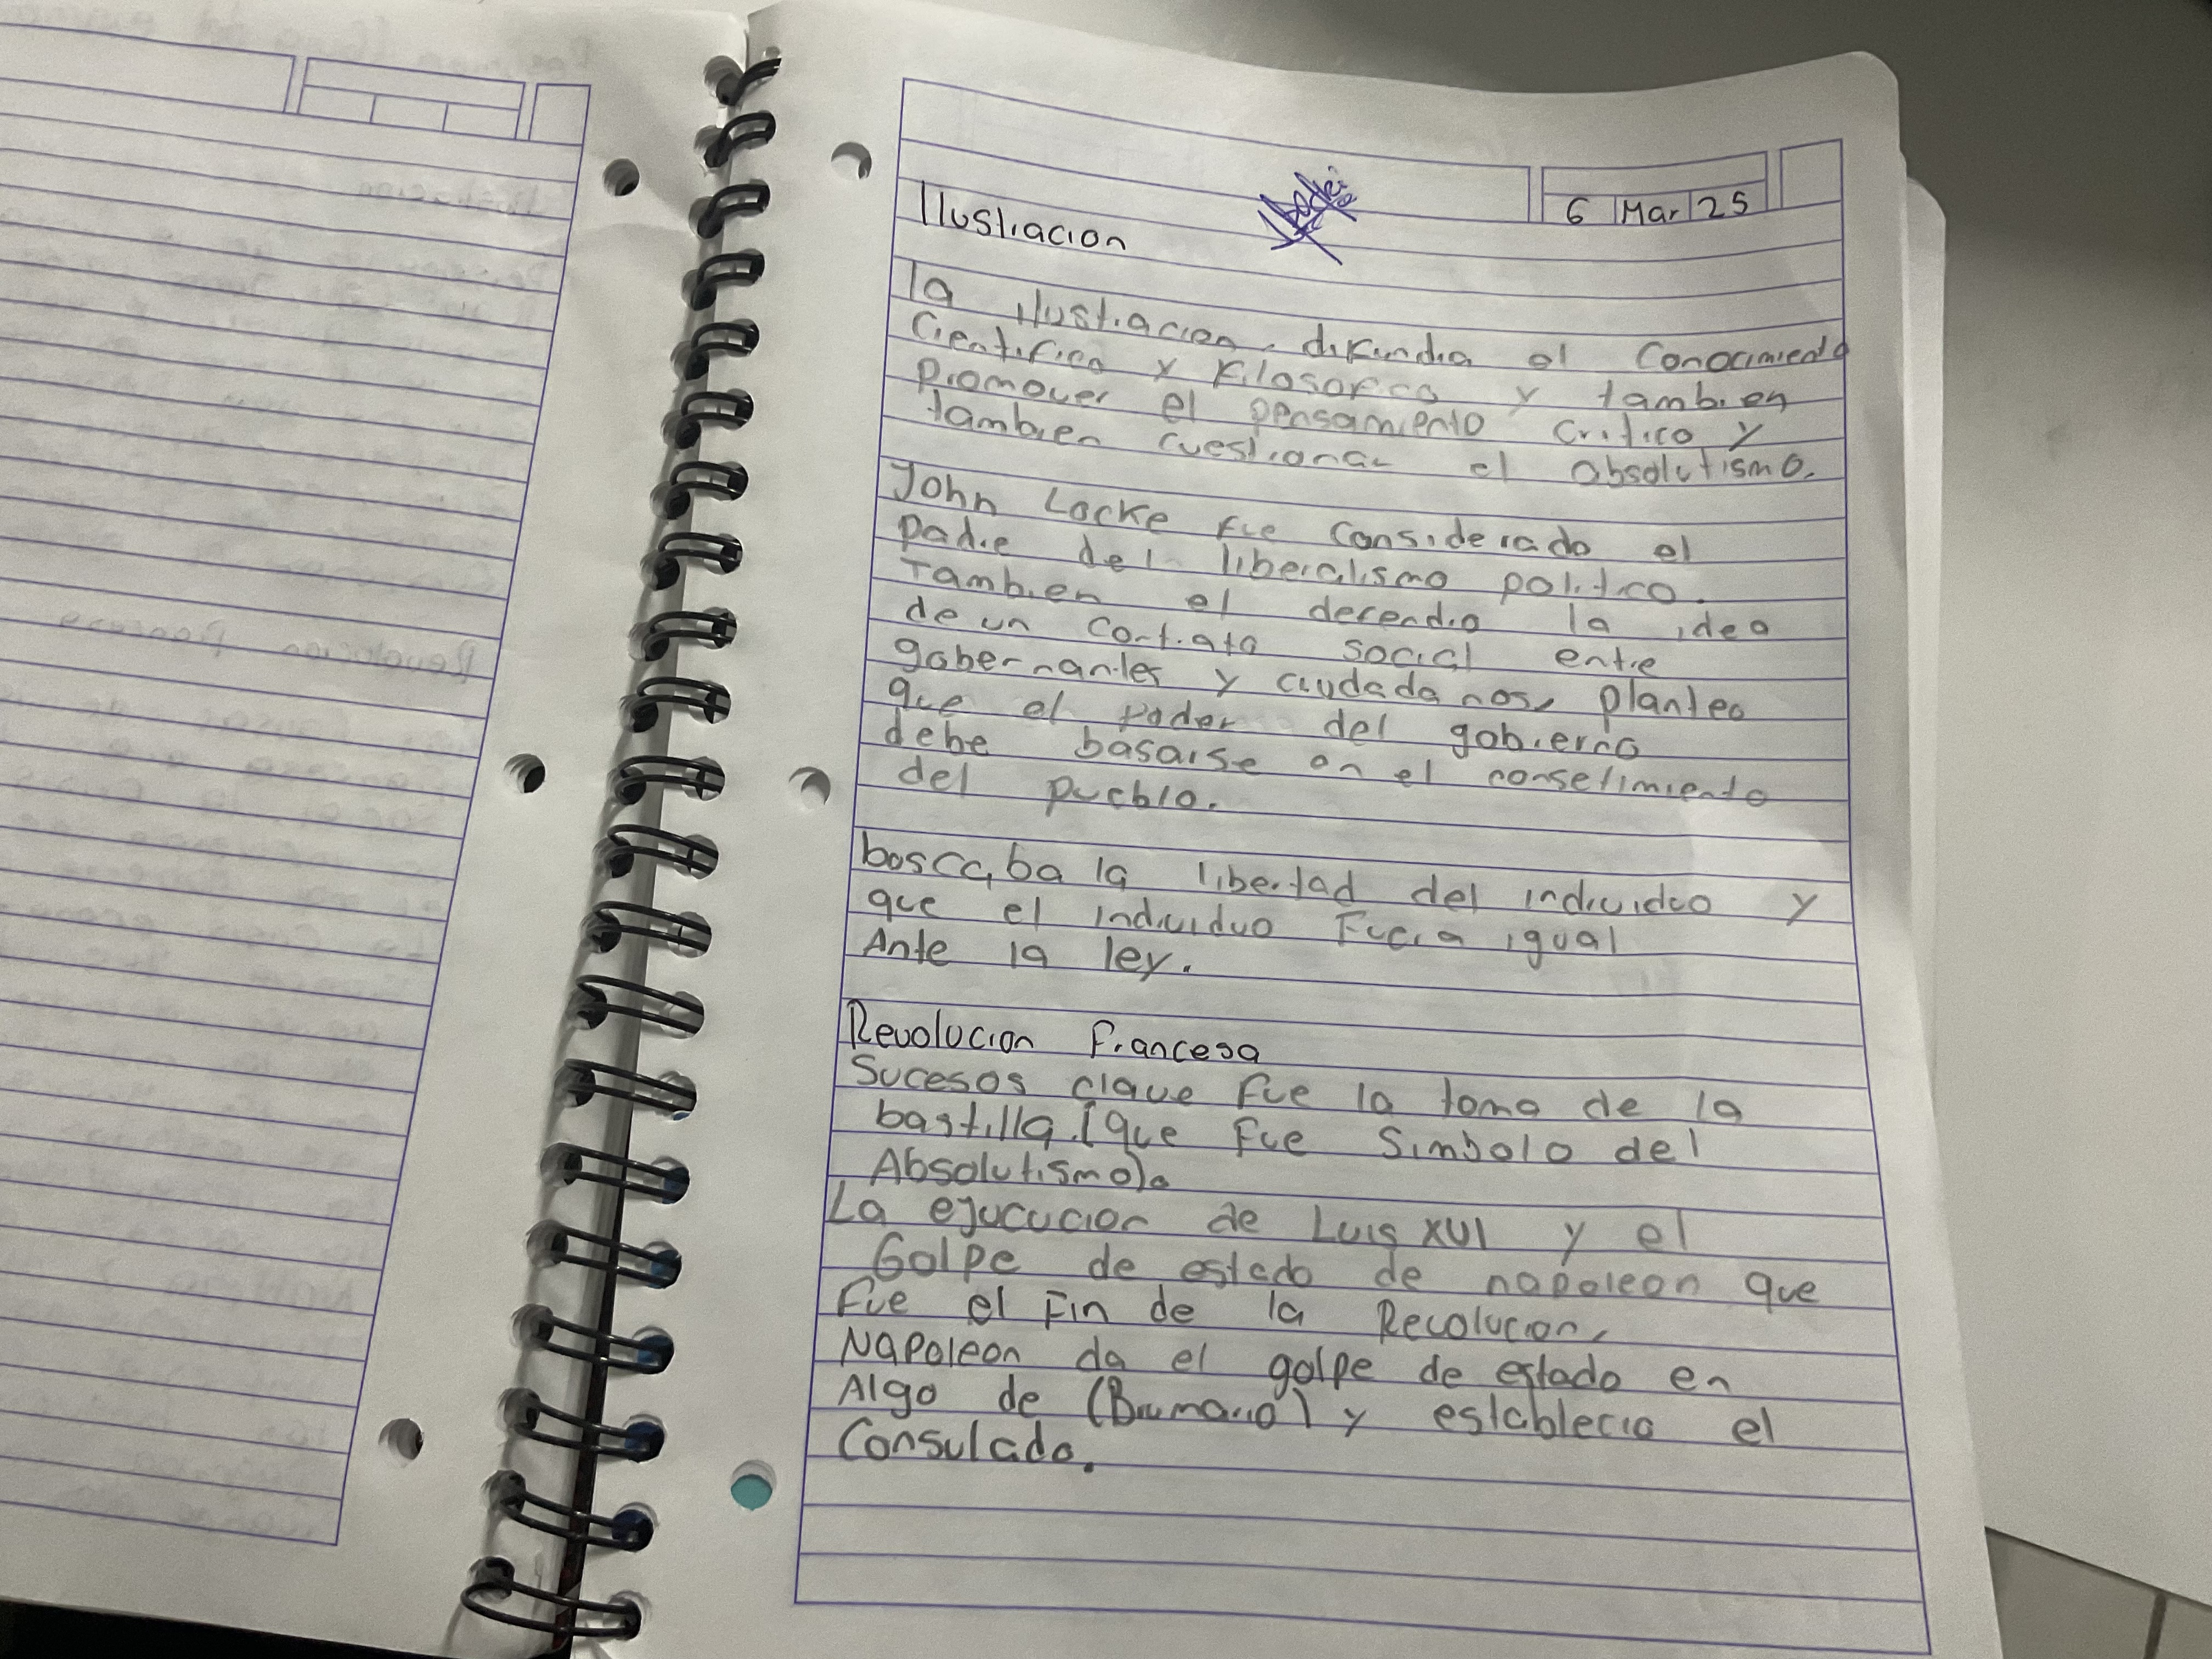 6 Mar 25
Ilustracion
la ilustracion, difundia el Conocimiento
Cientifico y Filosofico y tambien
Promover el pensamiento Critico y
tambien cuestionar el absolutismo.
John Locke fue Considerado el
Padre del liberalismo politico.
Tambien el defendio la idea
de un contrato social entre
gobernantes y ciudadanos, planteo
que el poder del gobierno
debe basarse en el consetimiento
del pueblo.
boscaba la libertad del individuo y
que el individuo Fuera igual
Ante la ley.
Revolucion Francesa
Sucesos clave fue la toma de la
bastilla. (que fue Simbolo del
Absolutismo).
La ejucucion de Luis XVI y el
Golpe de estado de napoleon que
fue el Fin de la Revolucion,
Napoleon da el golpe de estado en
Algo de (Brumario) y establecio el
Consulado.